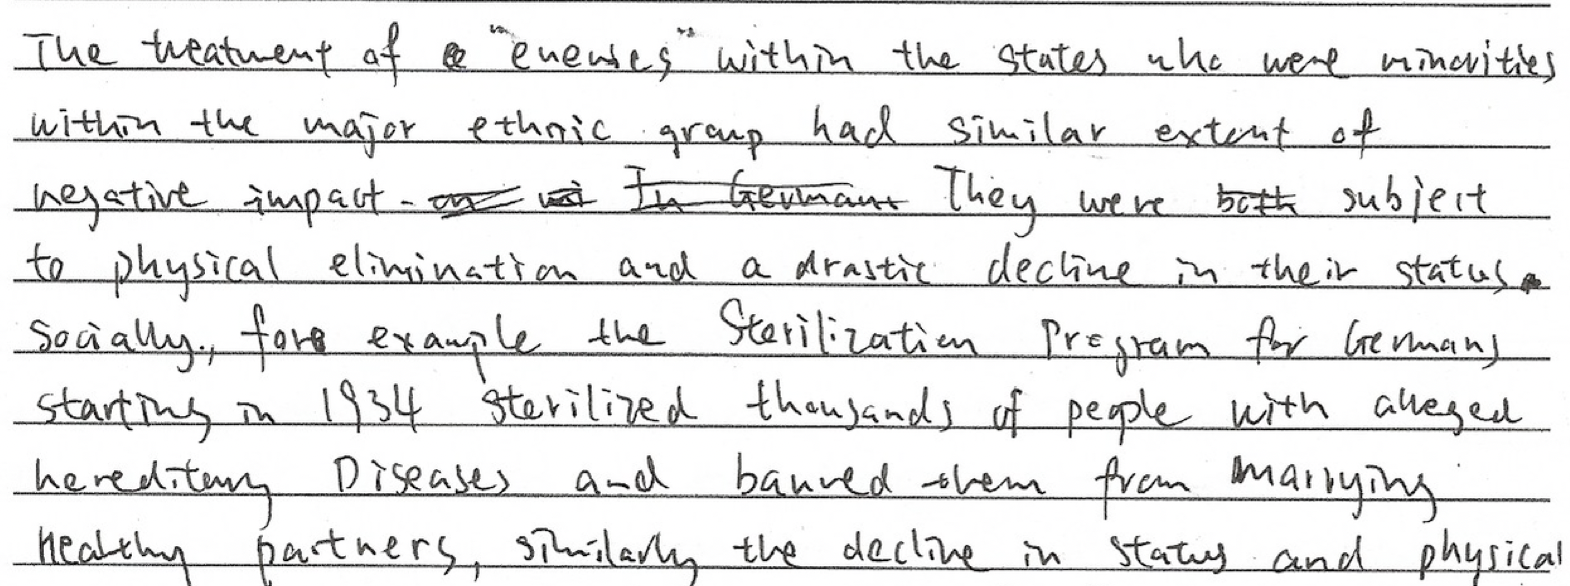 The treatment of "enemies" within the states who were minorities
within the major ethnic group had similar extent of
negative impact. They were subject
to physical elimination and a drastic decline in their status.
Socially, for example the Sterilization Program for Germans
starting in 1934 sterilized thousands of people with alleged
hereditary Diseases and banned them from marrying
healthy partners, similarly the decline in status and physical